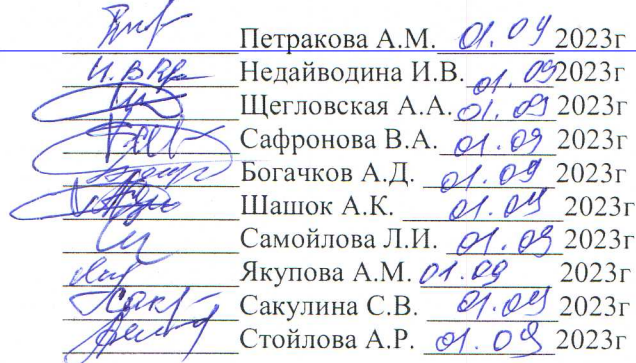 Петракова А.М. 01.09 2023г
И.В. Недайводина И.В. 01.09 2023г
Щегловская А.А. 01.09 2023г
Сафронова В.А. 01.09 2023г
Богачков А.Д. 01.09 2023г
Шашок А.К. 01.09 2023г
Самойлова Л.И. 01.09 2023г
Якупова А.М. 01.09 2023г
Сакулина С.В. 01.09 2023г
Стойлова А.Р. 01.09 2023г